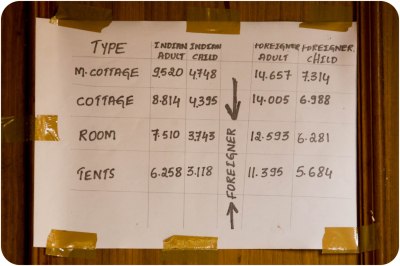 TYPE INDIAN ADULT INDIAN CHILD FOREIGNER ADULT FOREIGNER CHILD
M.COTTAGE 9520 4748 14.657 7.314
COTTAGE 8.814 4,395 14.005 6.988
ROOM 7.510 3,743 12.593 6.281
TENTS 6.258 3.118 11.395 5.684
FOREIGNER